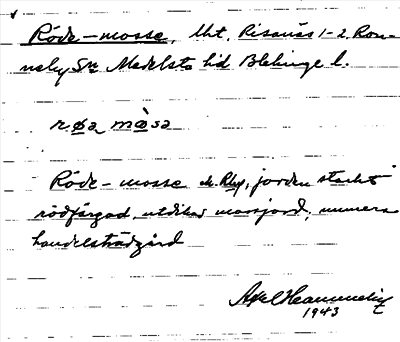 Röde-mosse, Uht. Risanäs 1-2, Ron-
neby Sn Medelsta hd Blekinge l.
rø̀a mòsa
Röde-mosse, jorden starkt
rödfärgad, utdikad mossjord, numera
handelsträdgård
Axel
1943